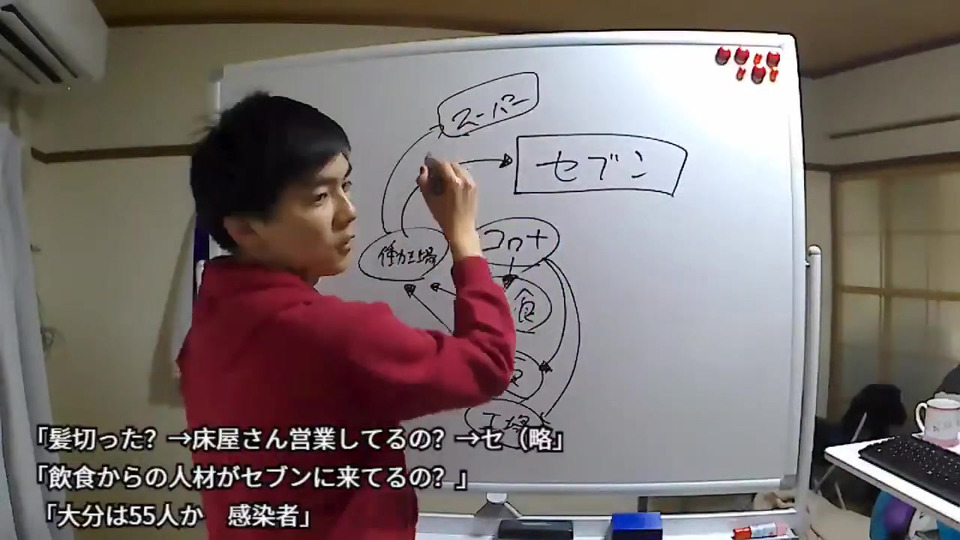 スーパー
セブン
働く工場
コロナ
食
工場
「髪切った？→床屋さん営業してるの？→セ（略」
「飲食からの人材がセブンに来てるの？」
「大分は55人か　感染者」